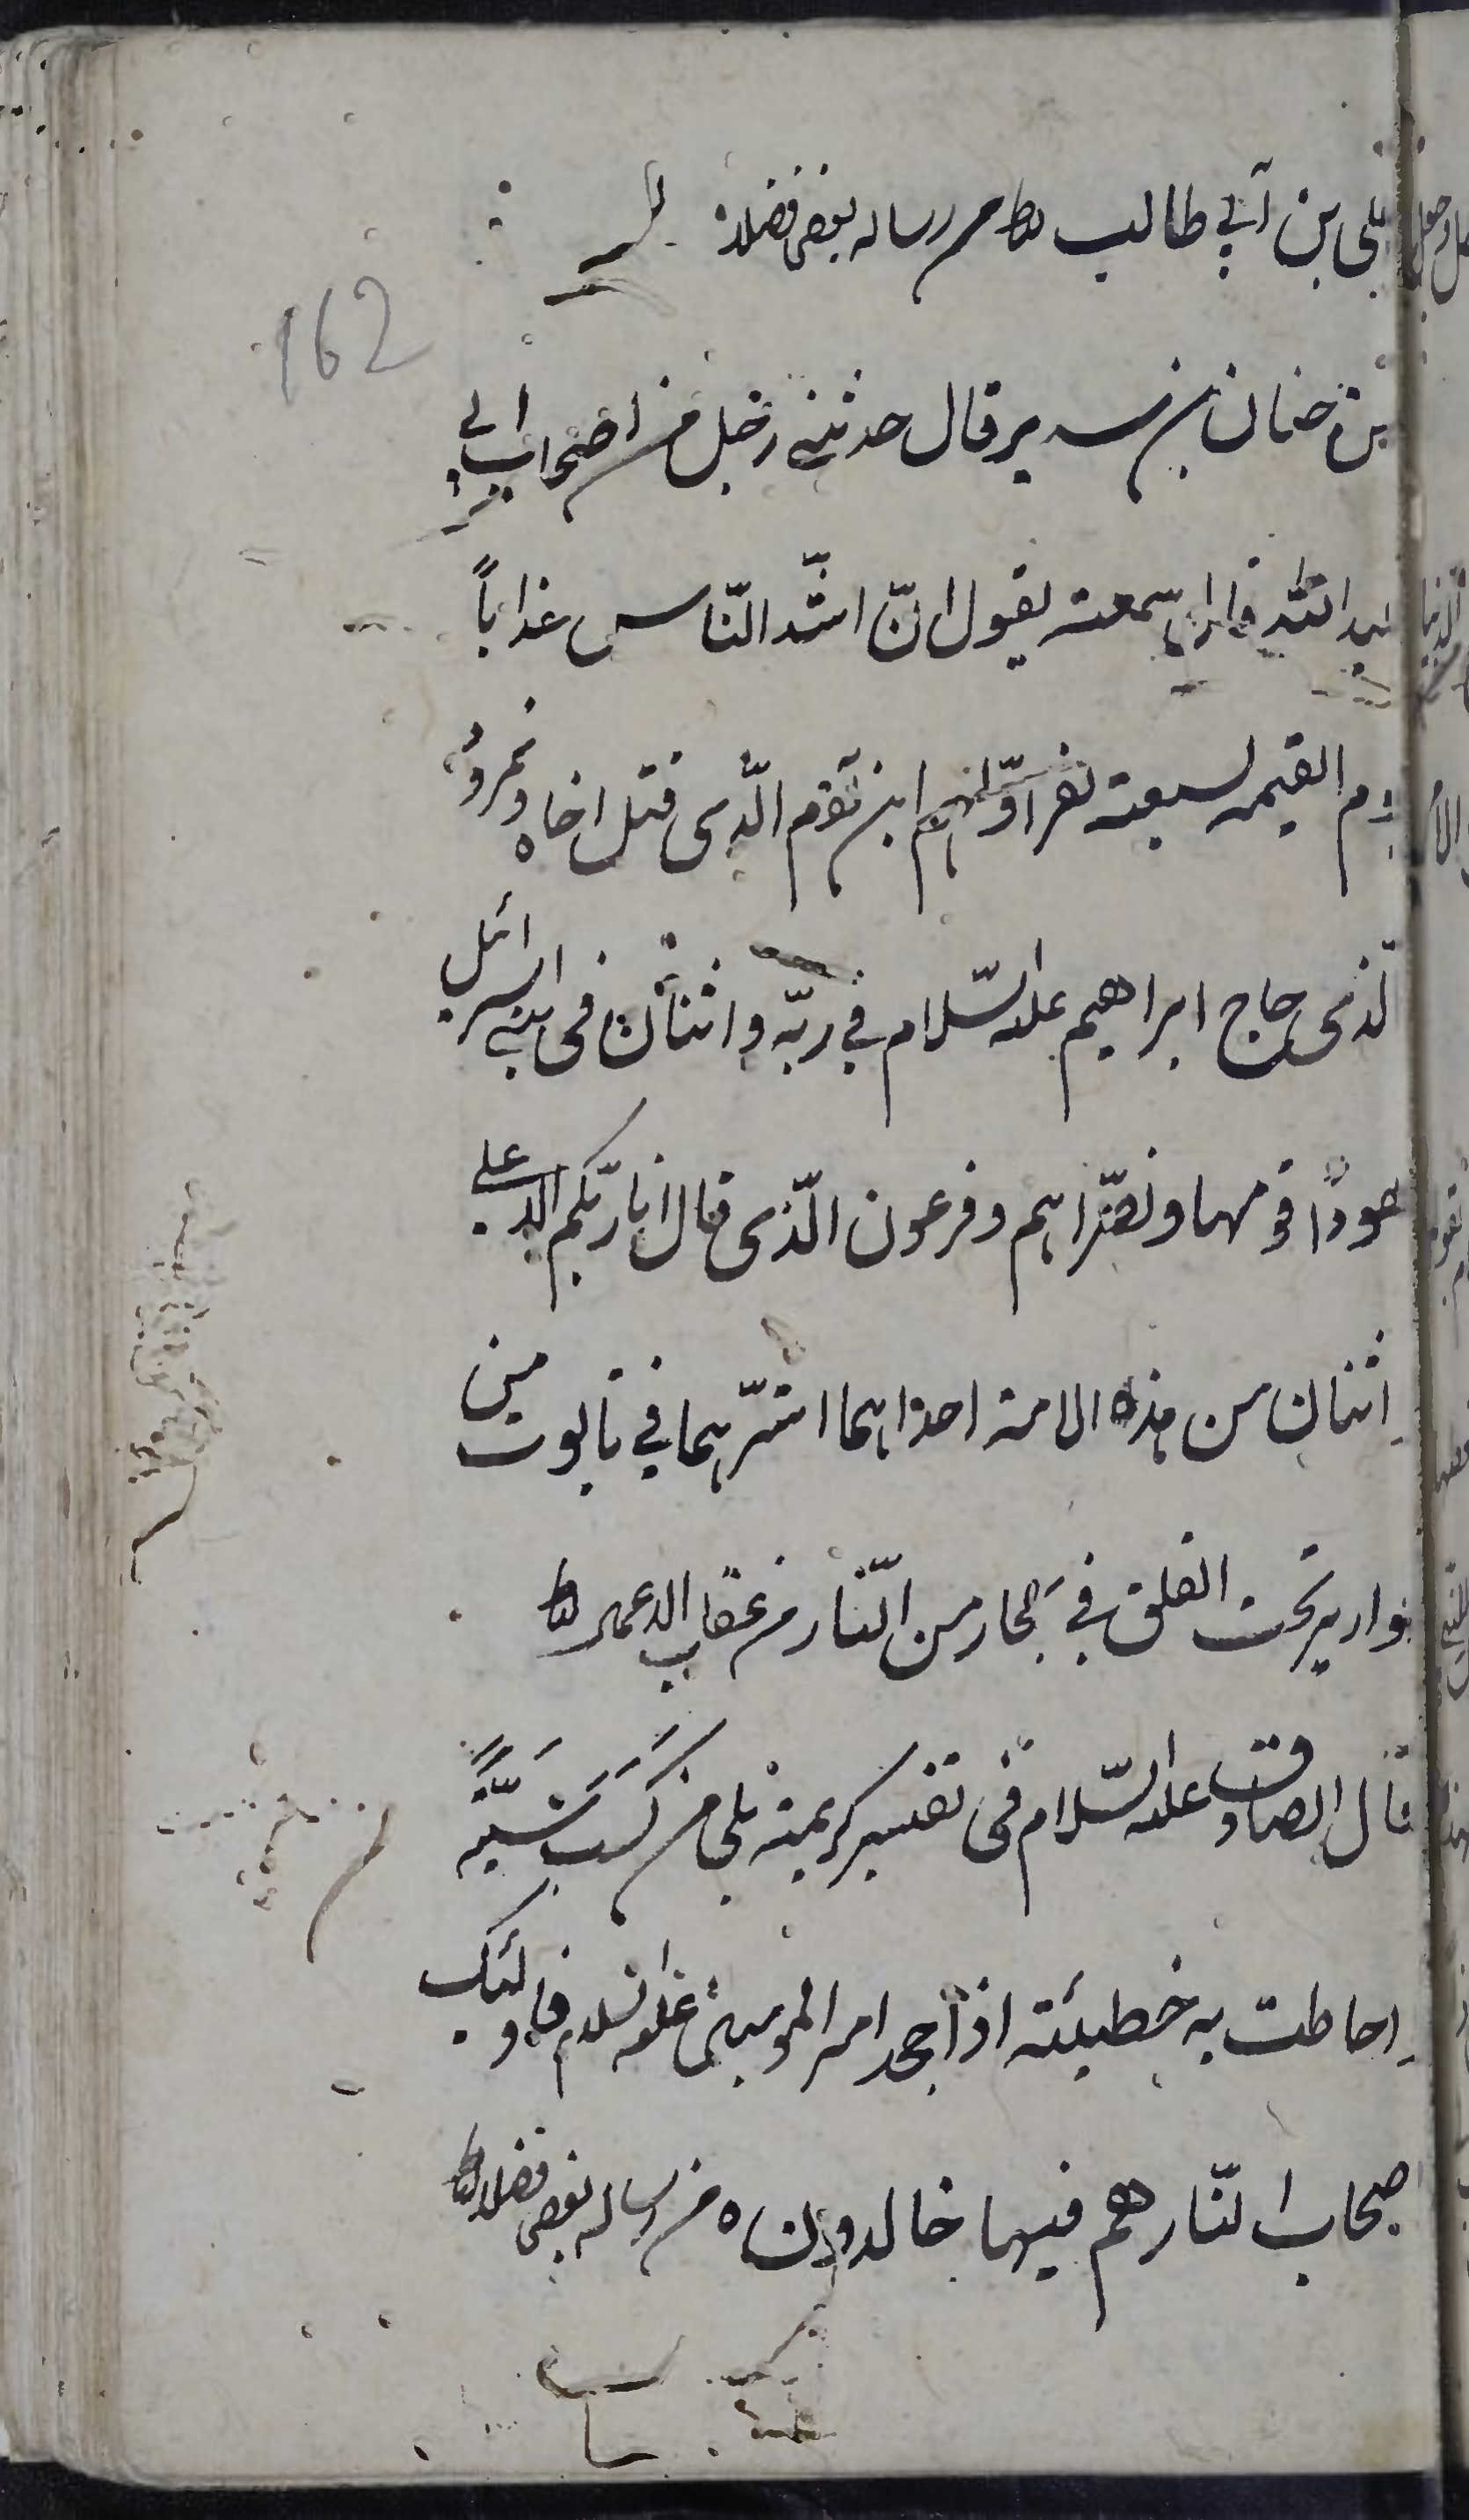 علی بن أبی طالب من رساله بعض فضلا
162
عن حنان بن سدیر قال حدثنی رجل من اصحاب ابی
عبد الله قال سمعته یقول انّ اشدّ النّاس عذاباً
یوم القیمه لسبعة نفر اوّلهم ابن آدم الّذی قتل اخاه و نمرود
لذی حاج ابراهیم علیه السّلام فی ربّه و اثنان فی بنی اسرائل
هودا قومهما و نصّراهم و فرعون الّذی قال انا ربّکم الاعلی
و اثنان من هذه الامة احداهما اشرّهما فی تابوت من
قواریر تحت الفلق فی بحار من النّار من عقاب الاعمال
قال الصادق علیه السّلام فی تفسیر کریمة بلی من کَسَبَ سَیِّئَةً
و احاطت به خطیئته اذا جحد امیر المومنین علیه السلام فاولئک
اصحاب النّار هم فیها خالدون من رساله بعض فضلا